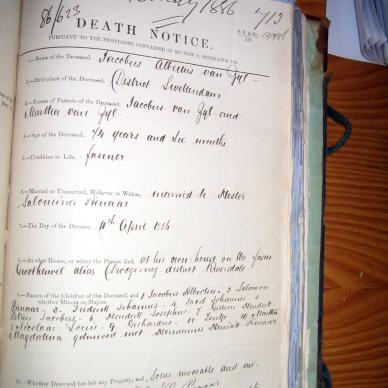 86/623
1886
713
DEATH NOTICE.
PURSUANT TO THE PROVISIONS CONTAINED IN SECTION 9, ORDINANCE 104.
1.—Name of the Deceased. Jacobus Albertus van Zyl
2.—Birth-place of the Deceased. District Swellendam
3.—Names of Parents of the Deceased. Jacobus van Zyl and
Martha van Zyl
4.—Age of the Deceased. 74 years and six months
5.—Condition in Life. farmer
6.—Married or Unmarried, Widower or Widow, married to Hester
Salomina Pienaar
7.—The Day of the Decease. April 1886
8.—At what House, or where the Person died, at his own house on the farm
alias district Riversdale
9.—Names of the Children of the Deceased, and 1 Jacobus Albertus - 2 Salomon
whether Minors or Majors.
Pienaar - 3 Frederik Johannes - 4 Jacob Johannes - 5
Petrus Jacobus - 6 Hendrik Josephus - 7 Willem Hendrik
8 Nicolaas Louis - 9 Gerhardus - 10 - 11 Martha
Magdalena gehuwd met Hermanus Hendrik Pienaar
10.—Whether Deceased has left any Property, and Some movable and